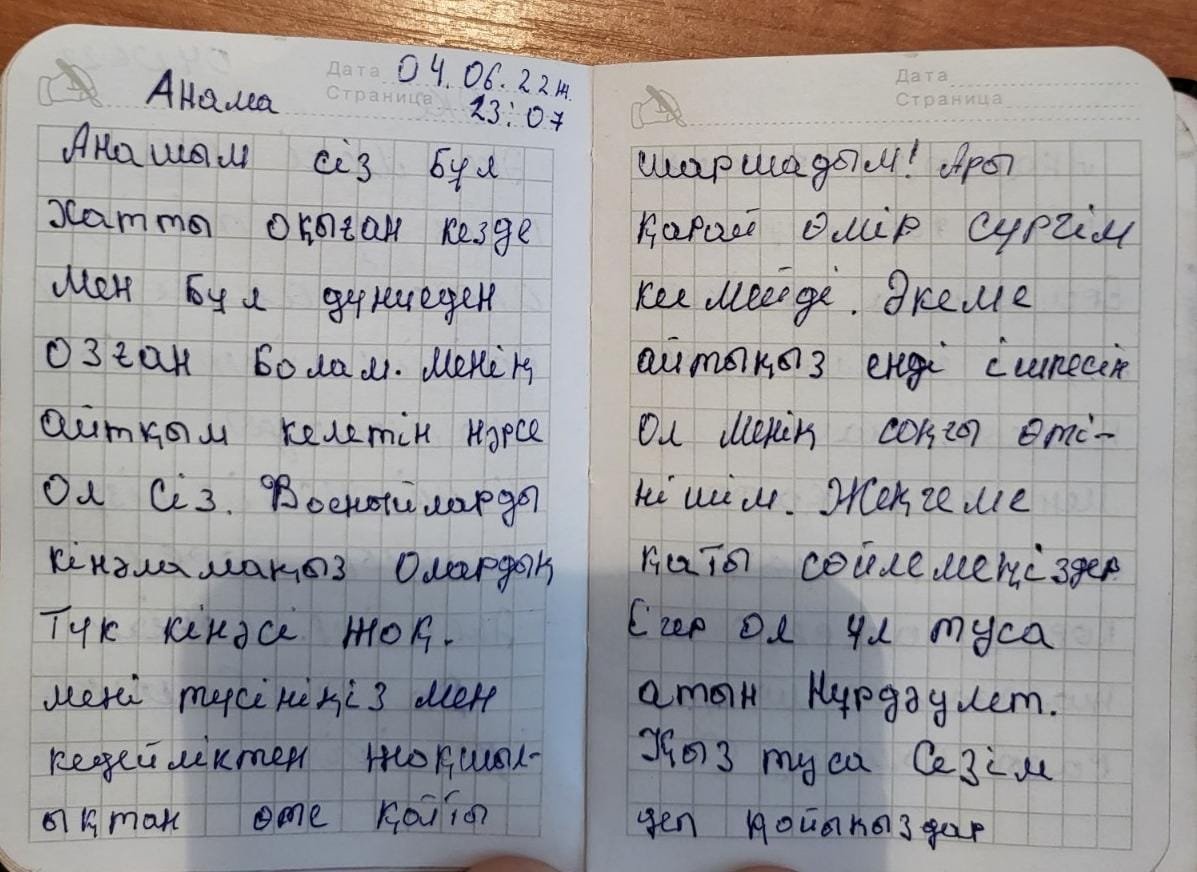 Дата 04.06.22ж.
Страница 23:07
Анама
Анашым сіз бұл
хатты оқыған кезде
мен бұл дүниеден
озған болам. Менің
айтқым келетін нәрсе
ол сіз. Военныйларды
кінәламаңыз Олардың
түк кінәсі жоқ.
мені түсініңіз мен
кедейліктен жоқшыл-
ықтан өте қатты
Дата
Страница
шаршадым! Ары
қарай өмір сүргім
келмейді. Әкеме
айтыңыз енді ішпесін
Ол менің соңғы өті-
нішім. Жеңгеме
қаты сөйлемеңіздер
Егер ол ұл туса
атын Нұрдәулет.
Қыз туса Сезім
деп қойыңыздар